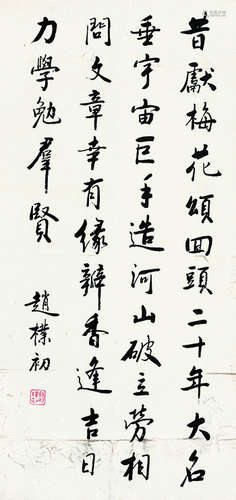 昔獻梅花頌回頭二十年大名
垂宇宙巨手造河山破立勞相
問文章幸有緣辦香逢吉日
力學勉羣賢
趙樸初